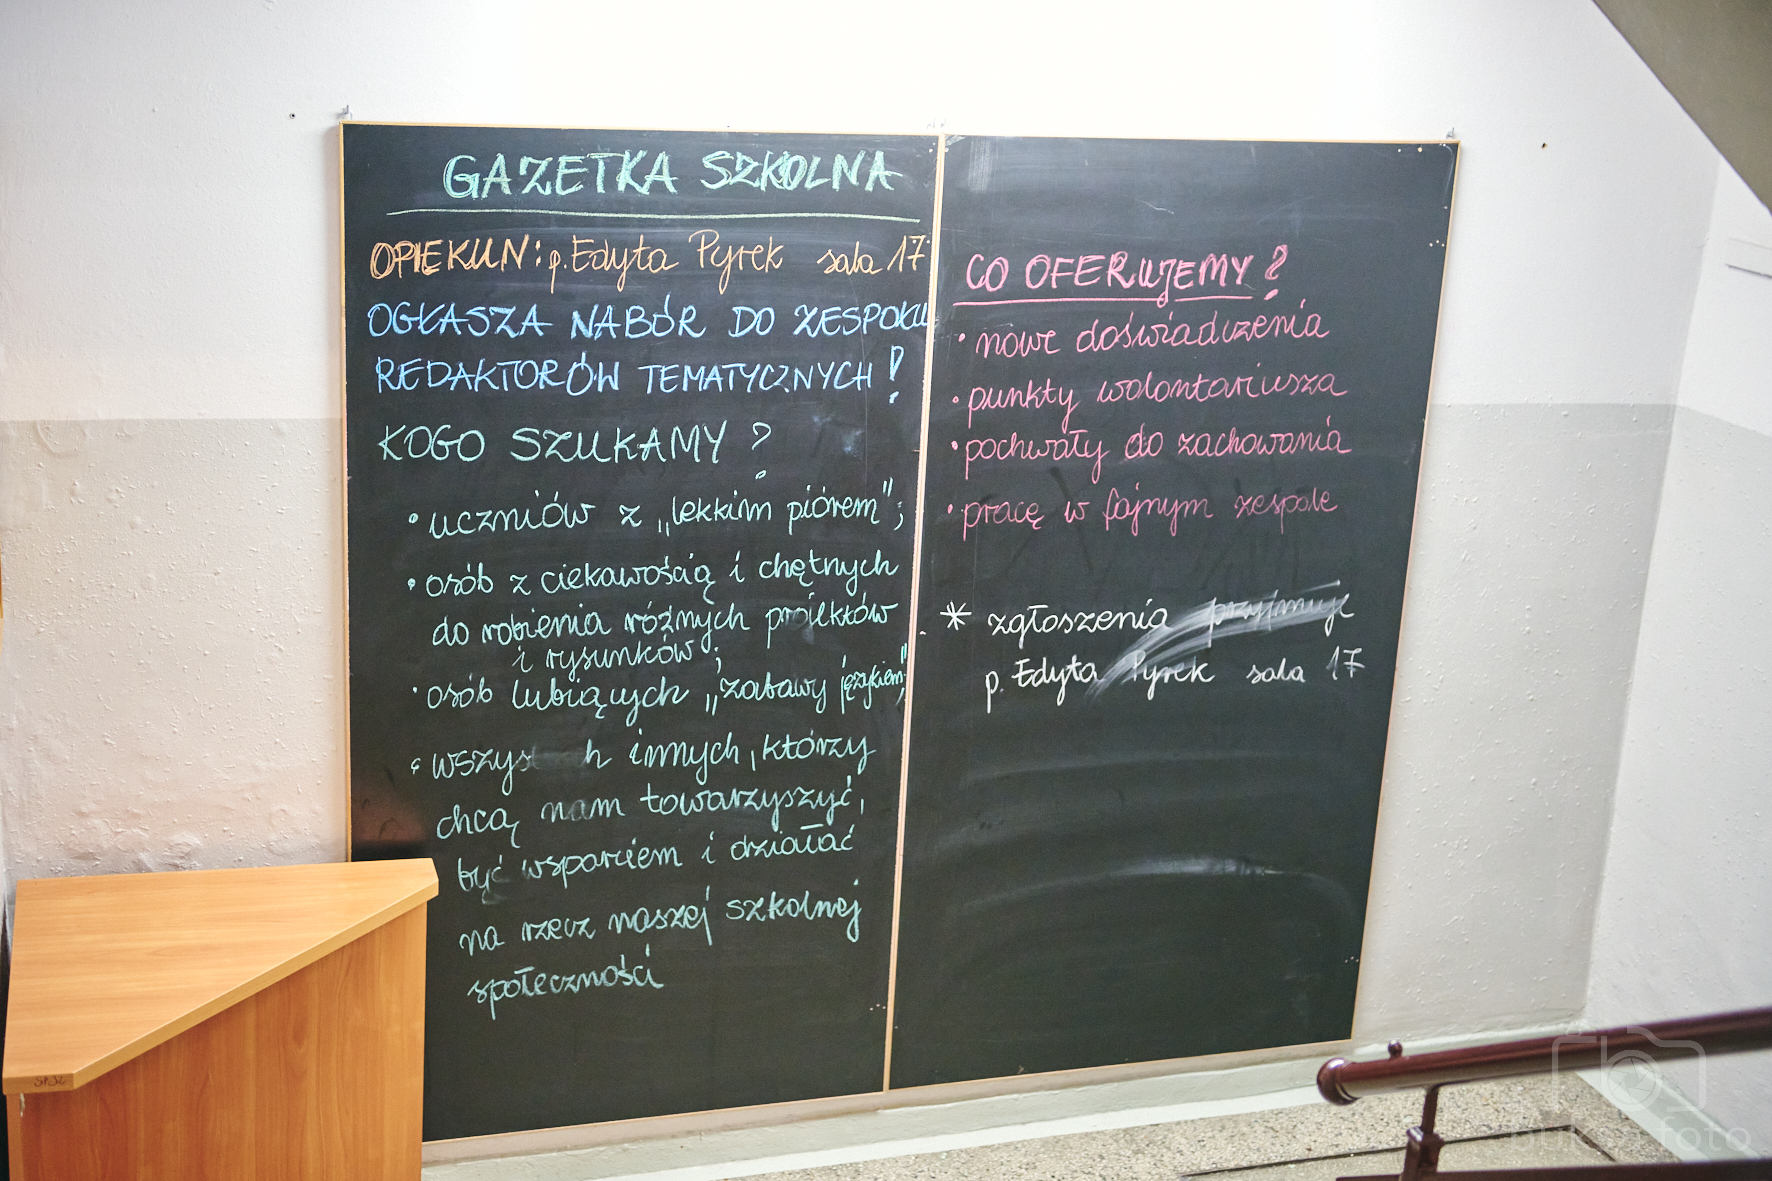 GAZETKA SZKOLNA
OPIEKUN: p. Edyta Pyrek sala 17
OGŁASZA NABÓR DO ZESPOŁU
REDAKTORÓW TEMATYCZNYCH!
KOGO SZUKAMY?
• uczniów z „lekkim piórem";
• osób z ciekawością i chętnych
do robienia różnych projektów
i rysunków;
• osób lubiących „zabawy językiem";
• wszys h innych, którzy
chcą nam towarzyszyć,
być wsparciem i działać
na rzecz naszej szkolnej
społeczności
CO OFERUJEMY?
• nowe doświadczenia
• punkty wolontariusza
• pochwały do zachowania
• pracę w fajnym zespole
* zgłoszenia przyjmuje
p. Edyta Pyrek sala 17
foto